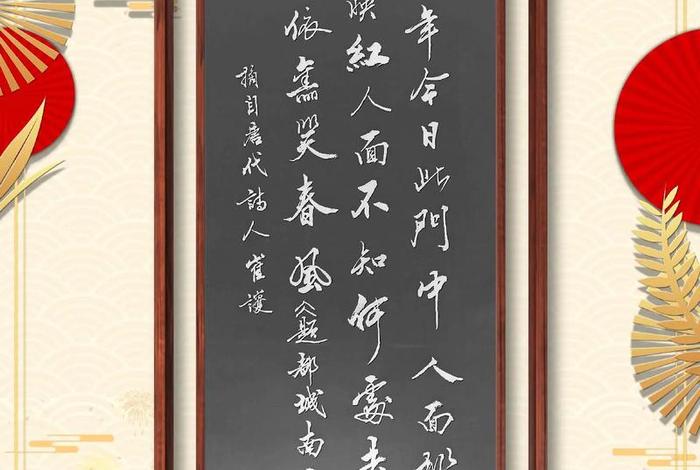 年今日此門中人面
映紅人面不知何處去
依舊笑春風《題都城南
摘自唐代詩人崔護